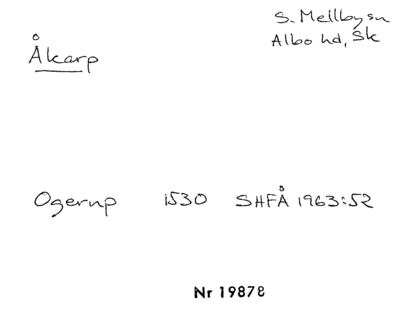 S. Mellby sn
Albo hd, Sk
Åkarp
Ogerup 1530 SHFÅ 1963:52
Nr 19878